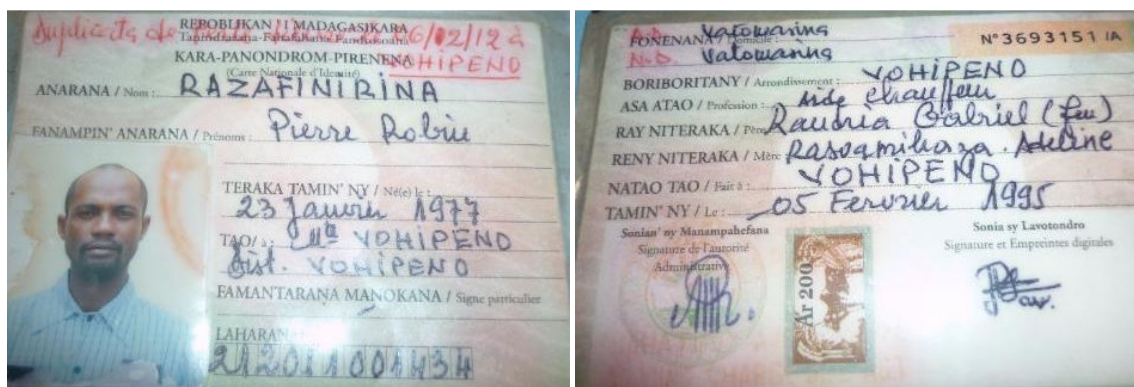 REPOBLIKAN'I MADAGASIKARA
Duplicata de
06/02/12 à
VOHIPENO
KARA-PANONDROM-PIRENENA
(Carte Nationale d'Identité)
ANARANA / Nom : RAZAFINIRINA
FANAMPIN' ANARANA / Prénoms : Pierre Robin
TERAKA TAMIN' NY / Né(e) le :
23 Janvier 1977
TAO/ à : VOHIPENO
Dist. VOHIPENO
FAMANTARANA MANOKANA / Signe particulier
LAHARANA
212011001434
FONENANA / Domicile : Vatomasina
N.D. Vatomasina
N°3693151 /A
BORIBORITANY / Arrondissement : VOHIPENO
ASA ATAO / Profession : Aide chauffeur
RAY NITERAKA / Père Gabriel (feu)
RENY NITERAKA / Mère Adeline
NATAO TAO / Fait à : VOHIPENO
TAMIN' NY / Le : 05 Fervrier 1995
Sonian' ny Manampahefana
Signature de l'autorité
Administrative
Sonia sy Lavotondro
Signature et Empreintes digitales
Ar 200